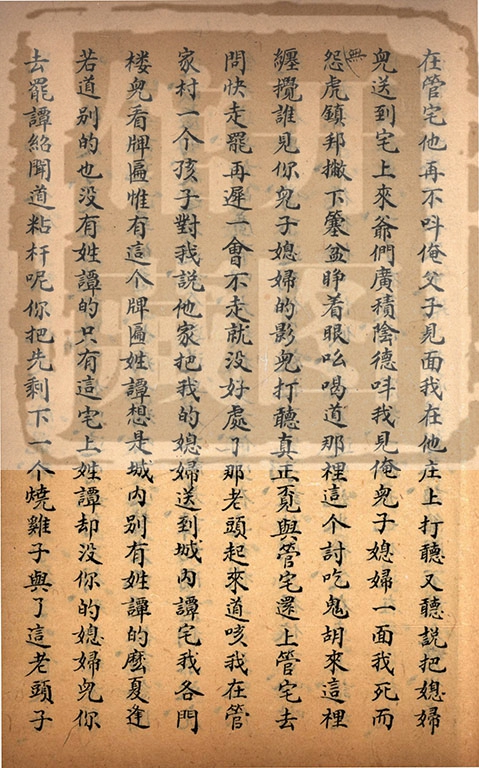 在管宅他再不呌俺父子見面我在他庄上打聽又聽說把媳婦
兒送到宅上來爺們廣積陰德呌我見俺兒子媳婦一面我死而
無
怨虎鎮邦撇下簺盆睁着眼吆喝道那裡這个討吃鬼胡來這裡
纏攪誰見你兒子媳婦的影兒打聽真正覔與管宅還上管宅去
問快走罷再遲一會不走就没好處了那老頭起來道咳我在管
家村一个孩子對我説他家把我的媳婦送到城内譚宅我各門
楼兒看牌匾惟有這个牌匾姓譚想是城内别有姓譚的麽夏逢
若道别的也没有姓譚的只有這宅上姓譚却没你的媳婦兒你
去罷譚紹聞道粘杆呢你把先剩下一个燒雞子與了這老頭子